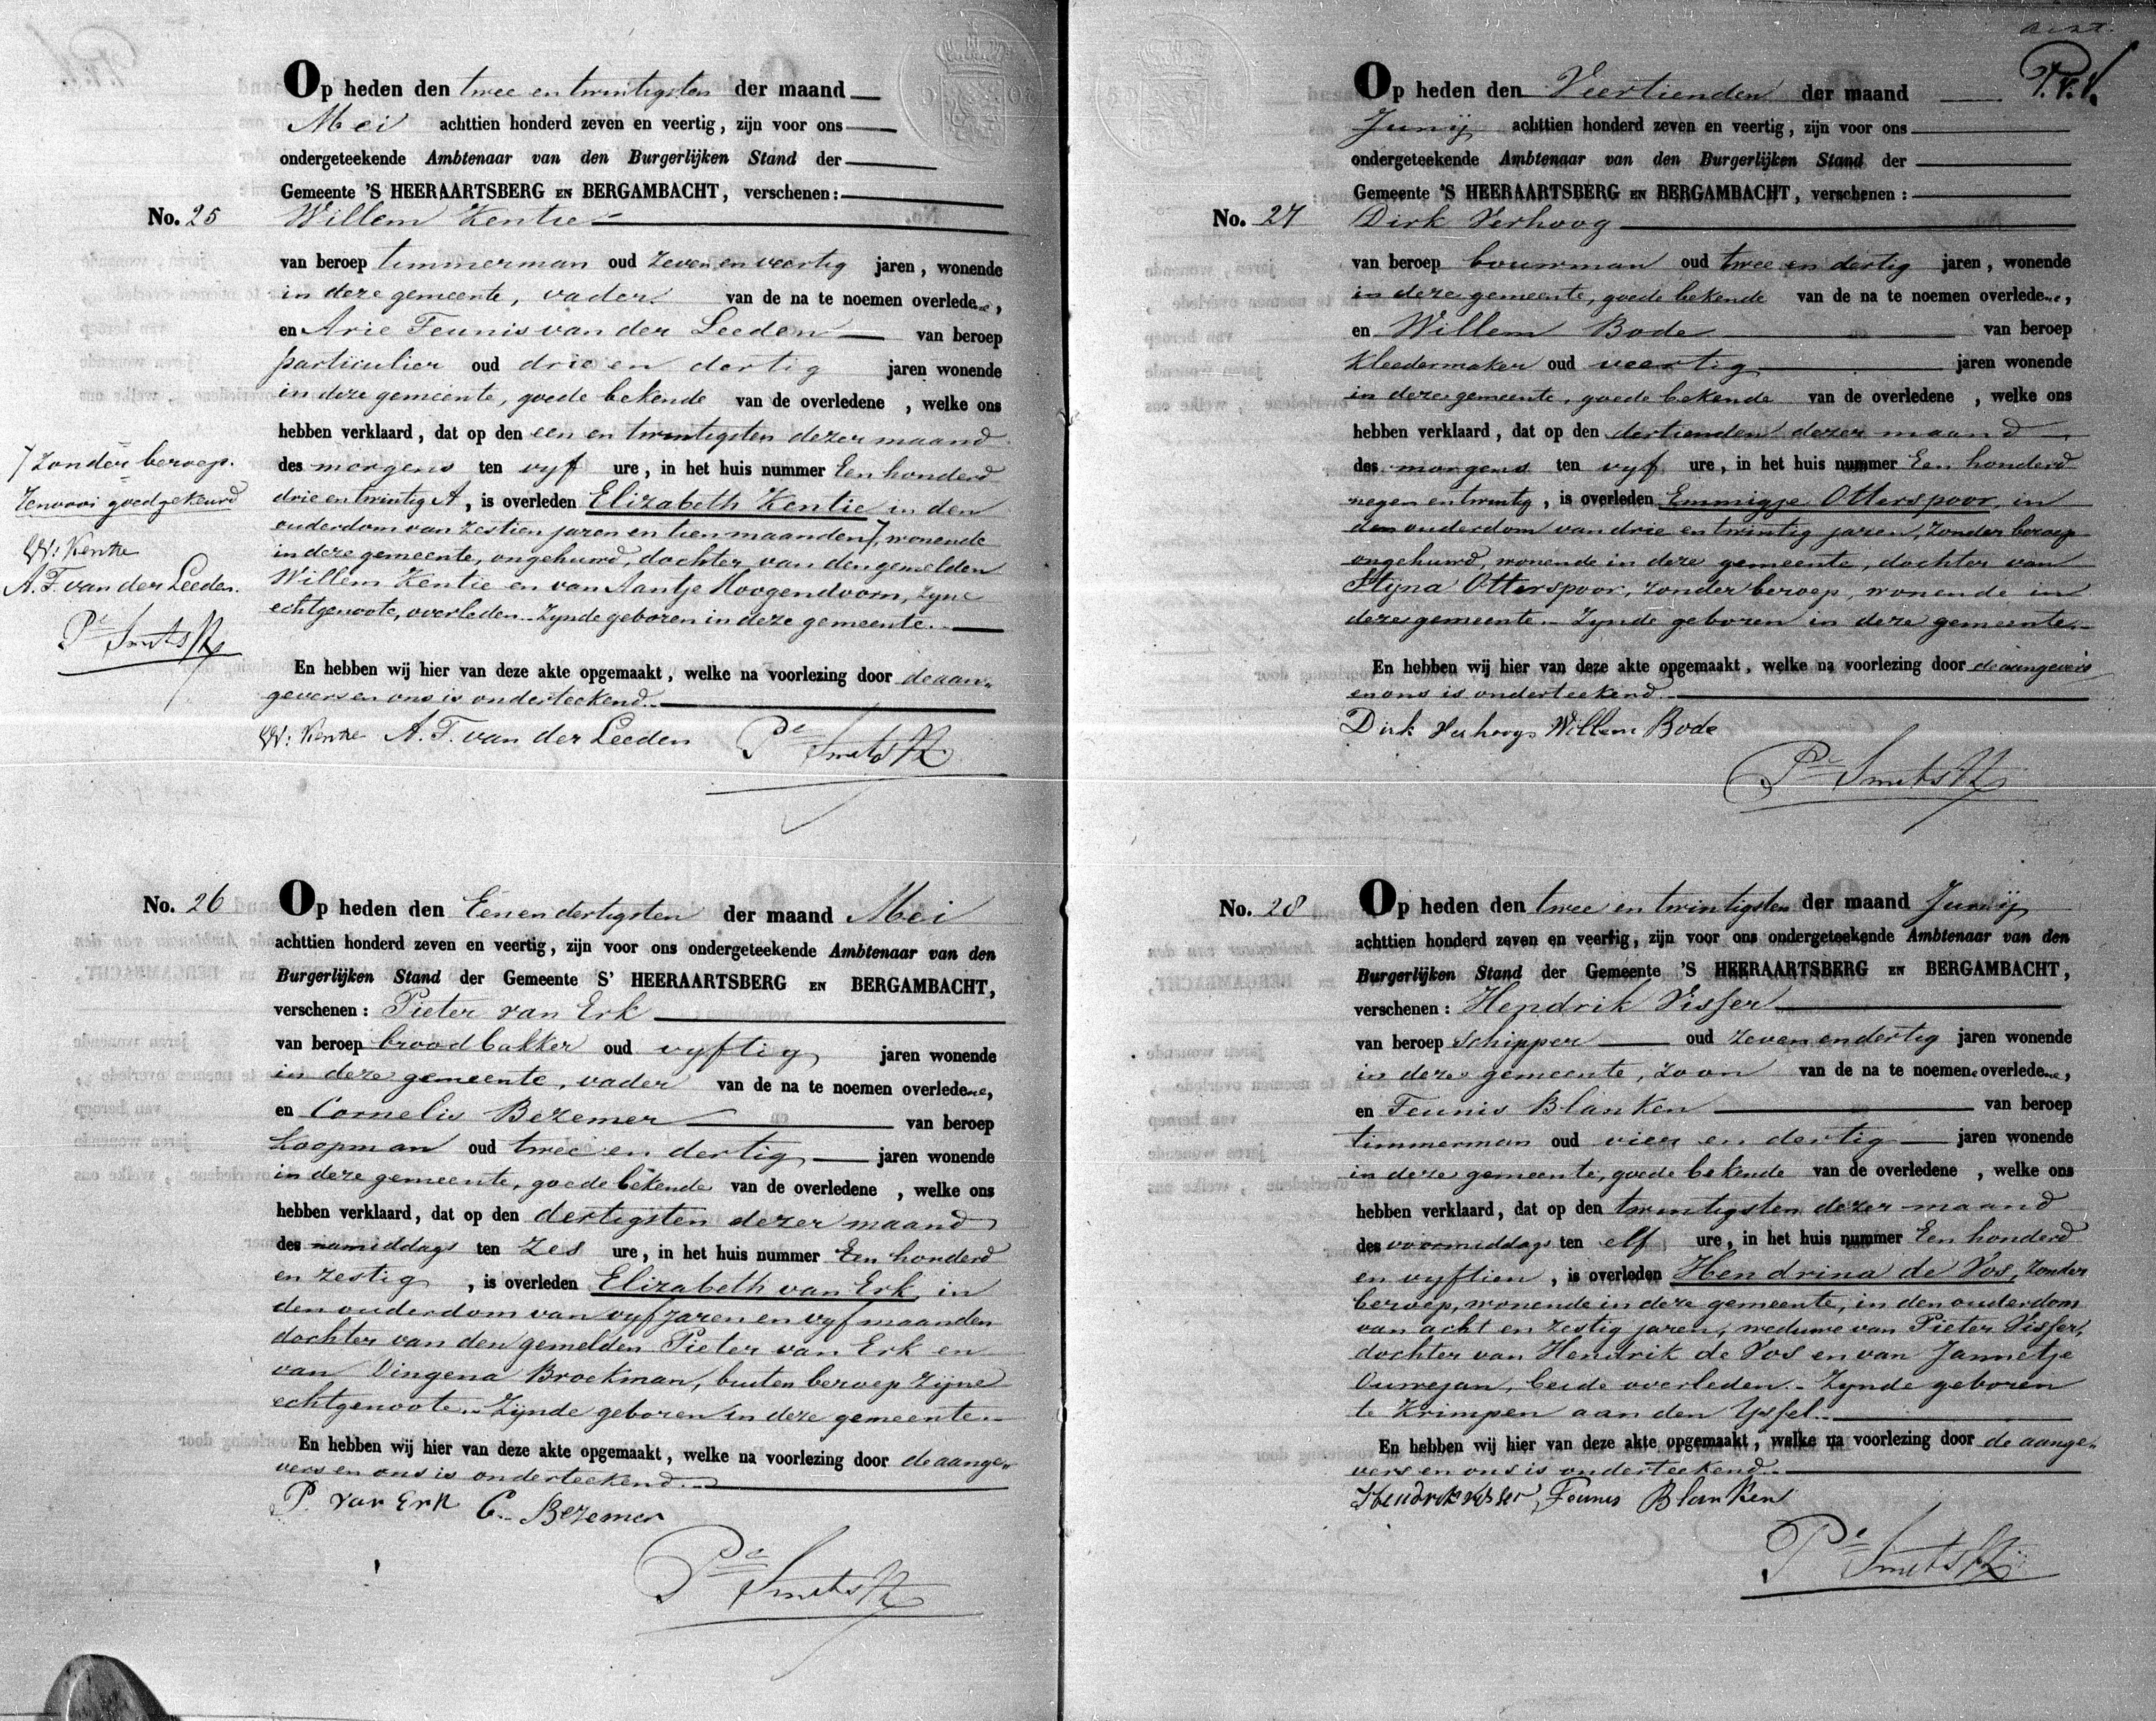 Op heden den twee en twintigsten der maand
Mei achttien honderd zeven en veertig, zijn voor ons
ondergeteekende Ambtenaar van den Burgerlijken Stand der
Gemeente 'S HEERAARTSBERG EN BERGAMBACHT, verschenen:
No. 25 Willem Kentie
van beroep timmerman oud zeven en veertig jaren, wonende
in deze gemeente, vader van de na te noemen overledene,
en Arie Teunis van der Leeden van beroep
particulier oud drie en dertig jaren wonende
in deze gemeente, goede bekende van de overledene , welke ons
hebben verklaard, dat op den een en twintigsten dezer maand
des morgens ten vyf ure, in het huis nummer Een honderd
drie en twintig A, is overleden Elizabeth Kentie in den
ouderdom van zestien jaren en tien maanden, wonende
in deze gemeente, ongehuwd, dochter van den gemelden
Willem Kentie en van Aantje Hoogendoorn, zyne
echtgenoote, overleden. Zynde geboren in deze gemeente.
En hebben wij hier van deze akte opgemaakt, welke na voorlezing door de aan-
gevers en ons is onderteekend.
W: Kentie A. T. van der Leeden Pr Smits
zonder beroep.
goedgekeurd
W: Kentie
A. T. van der Leeden.
Pr Smits
No. 26 Op heden den Een en dertigsten der maand Mei
achttien honderd zeven en veertig, zijn voor ons ondergeteekende Ambtenaar van den
Burgerlijken Stand der Gemeente S' HEERAARTSBERG EN BERGAMBACHT,
verschenen: Pieter van Erk
van beroep broodbakker oud vyftig jaren wonende
in deze gemeente, vader van de na te noemen overledene,
en Cornelis Bezemer van beroep
koopman oud twee en dertig jaren wonende
in deze gemeente, goede bekende van de overledene , welke ons
hebben verklaard, dat op den dertigsten dezer maand
des namiddags ten zes ure, in het huis nummer Een honderd
en zestig , is overleden Elizabeth van Erk, in
den ouderdom van vyf jaren en vyf maanden
dochter van den gemelden Pieter van Erk en
van Dingena Broekman, buiten beroep zijne
echtgenoote. Zijnde geboren in deze gemeente.
En hebben wij hier van deze akte opgemaakt, welke na voorlezing door de aange-
vers en ons is onderteekend.
P. van Erk C. Bezemer
Pr Smits
P.V.V.
Op heden den Veertienden der maand
Junij achttien honderd zeven en veertig, zijn voor ons
ondergeteekende Ambtenaar van den Burgerlijken Stand der
Gemeente 'S HEERAARTSBERG EN BERGAMBACHT, verschenen:
No. 27 Dirk Verhoog
van beroep bouwman oud twee en dertig jaren, wonende
in deze gemeente, goede bekende van de na te noemen overledene,
en Willem Bode van beroep
kleedermaker oud veertig jaren wonende
in deze gemeente, goede bekende van de overledene , welke ons
hebben verklaard, dat op den dertienden dezer maand
des morgens ten vyf ure, in het huis nummer Een honderd
negen en twintig, is overleden Emmigje Otterspoor, in
den ouderdom van drie en twintig jaren, zonder beroep
ongehuwd, wonende in deze gemeente, dochter van
Stijna Otterspoor, zonder beroep, wonende in
deze gemeente. Zynde geboren in deze gemeente.
En hebben wij hier van deze akte opgemaakt, welke na voorlezing door de aangevers
en ons is onderteekend.
Dirk Verhoog Willem Bode
Pr Smits
No. 28 Op heden den twee en twintigsten der maand Junij
achttien honderd zeven en veertig, zijn voor ons ondergeteekende Ambtenaar van den
Burgerlijken Stand der Gemeente 'S HEERAARTSBERG EN BERGAMBACHT,
verschenen: Hendrik Visser
van beroep Schipper oud zeven en dertig jaren wonende
in deze gemeente, zoon van de na te noemen overledene,
en Teunis Blanken van beroep
timmerman oud vier en dertig jaren wonende
in deze gemeente, goede bekende van de overledene , welke ons
hebben verklaard, dat op den twintigsten dezer maand
des voormiddags ten elf ure, in het huis nummer Een honderd
en vyftien, is overleden Hendrina de Vos, zonder
beroep, wonende in deze gemeente, in den ouderdom
van acht en zestig jaren, weduwe van Pieter Visser,
dochter van Hendrik de Vos en van Jannetje
Ouwejan, beide overleden. Zynde geboren
te Krimpen aan den Yssel.
En hebben wij hier van deze akte opgemaakt, welke na voorlezing door de aange-
vers en ons is onderteekend.
Hendrik Visser, Teunis Blanken
Pr Smits